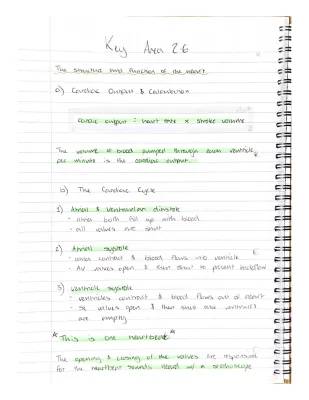 Key Area 2.6
The structure and function of the heart.
a) Cardiac Output & Calculation
cardiac output = heart rate x stroke volume
The volume of blood pumped through each ventricle
per minute is the cardiac output.
b) The Cardiac Cycle
1) Atrial & ventricular diastole
- atria both fill up with blood
- all valves are shut
2) Atrial systole
- atria contract & blood flows into ventricle
- AV valves open & then shut to prevent backflow
3) Ventricle systole
- ventricles contract & blood flows out of heart
- SL valves open & then shut once ventricles
are empty
* This is one heartbeat *
The opening & closing of the valves are responsible
for the heartbeat sounds heard w/ a stethoscope